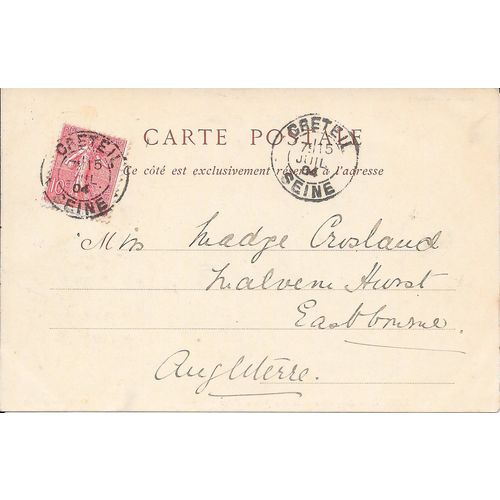 CARTE POSTALE
Ce côté est exclusivement réservé à l'adresse
CRETEIL
15
04
SEINE
CRETEIL
15
JUIL
04
SEINE
Miss Madge Crosland
Malvern Hurst
Eastbourne.
Angleterre.